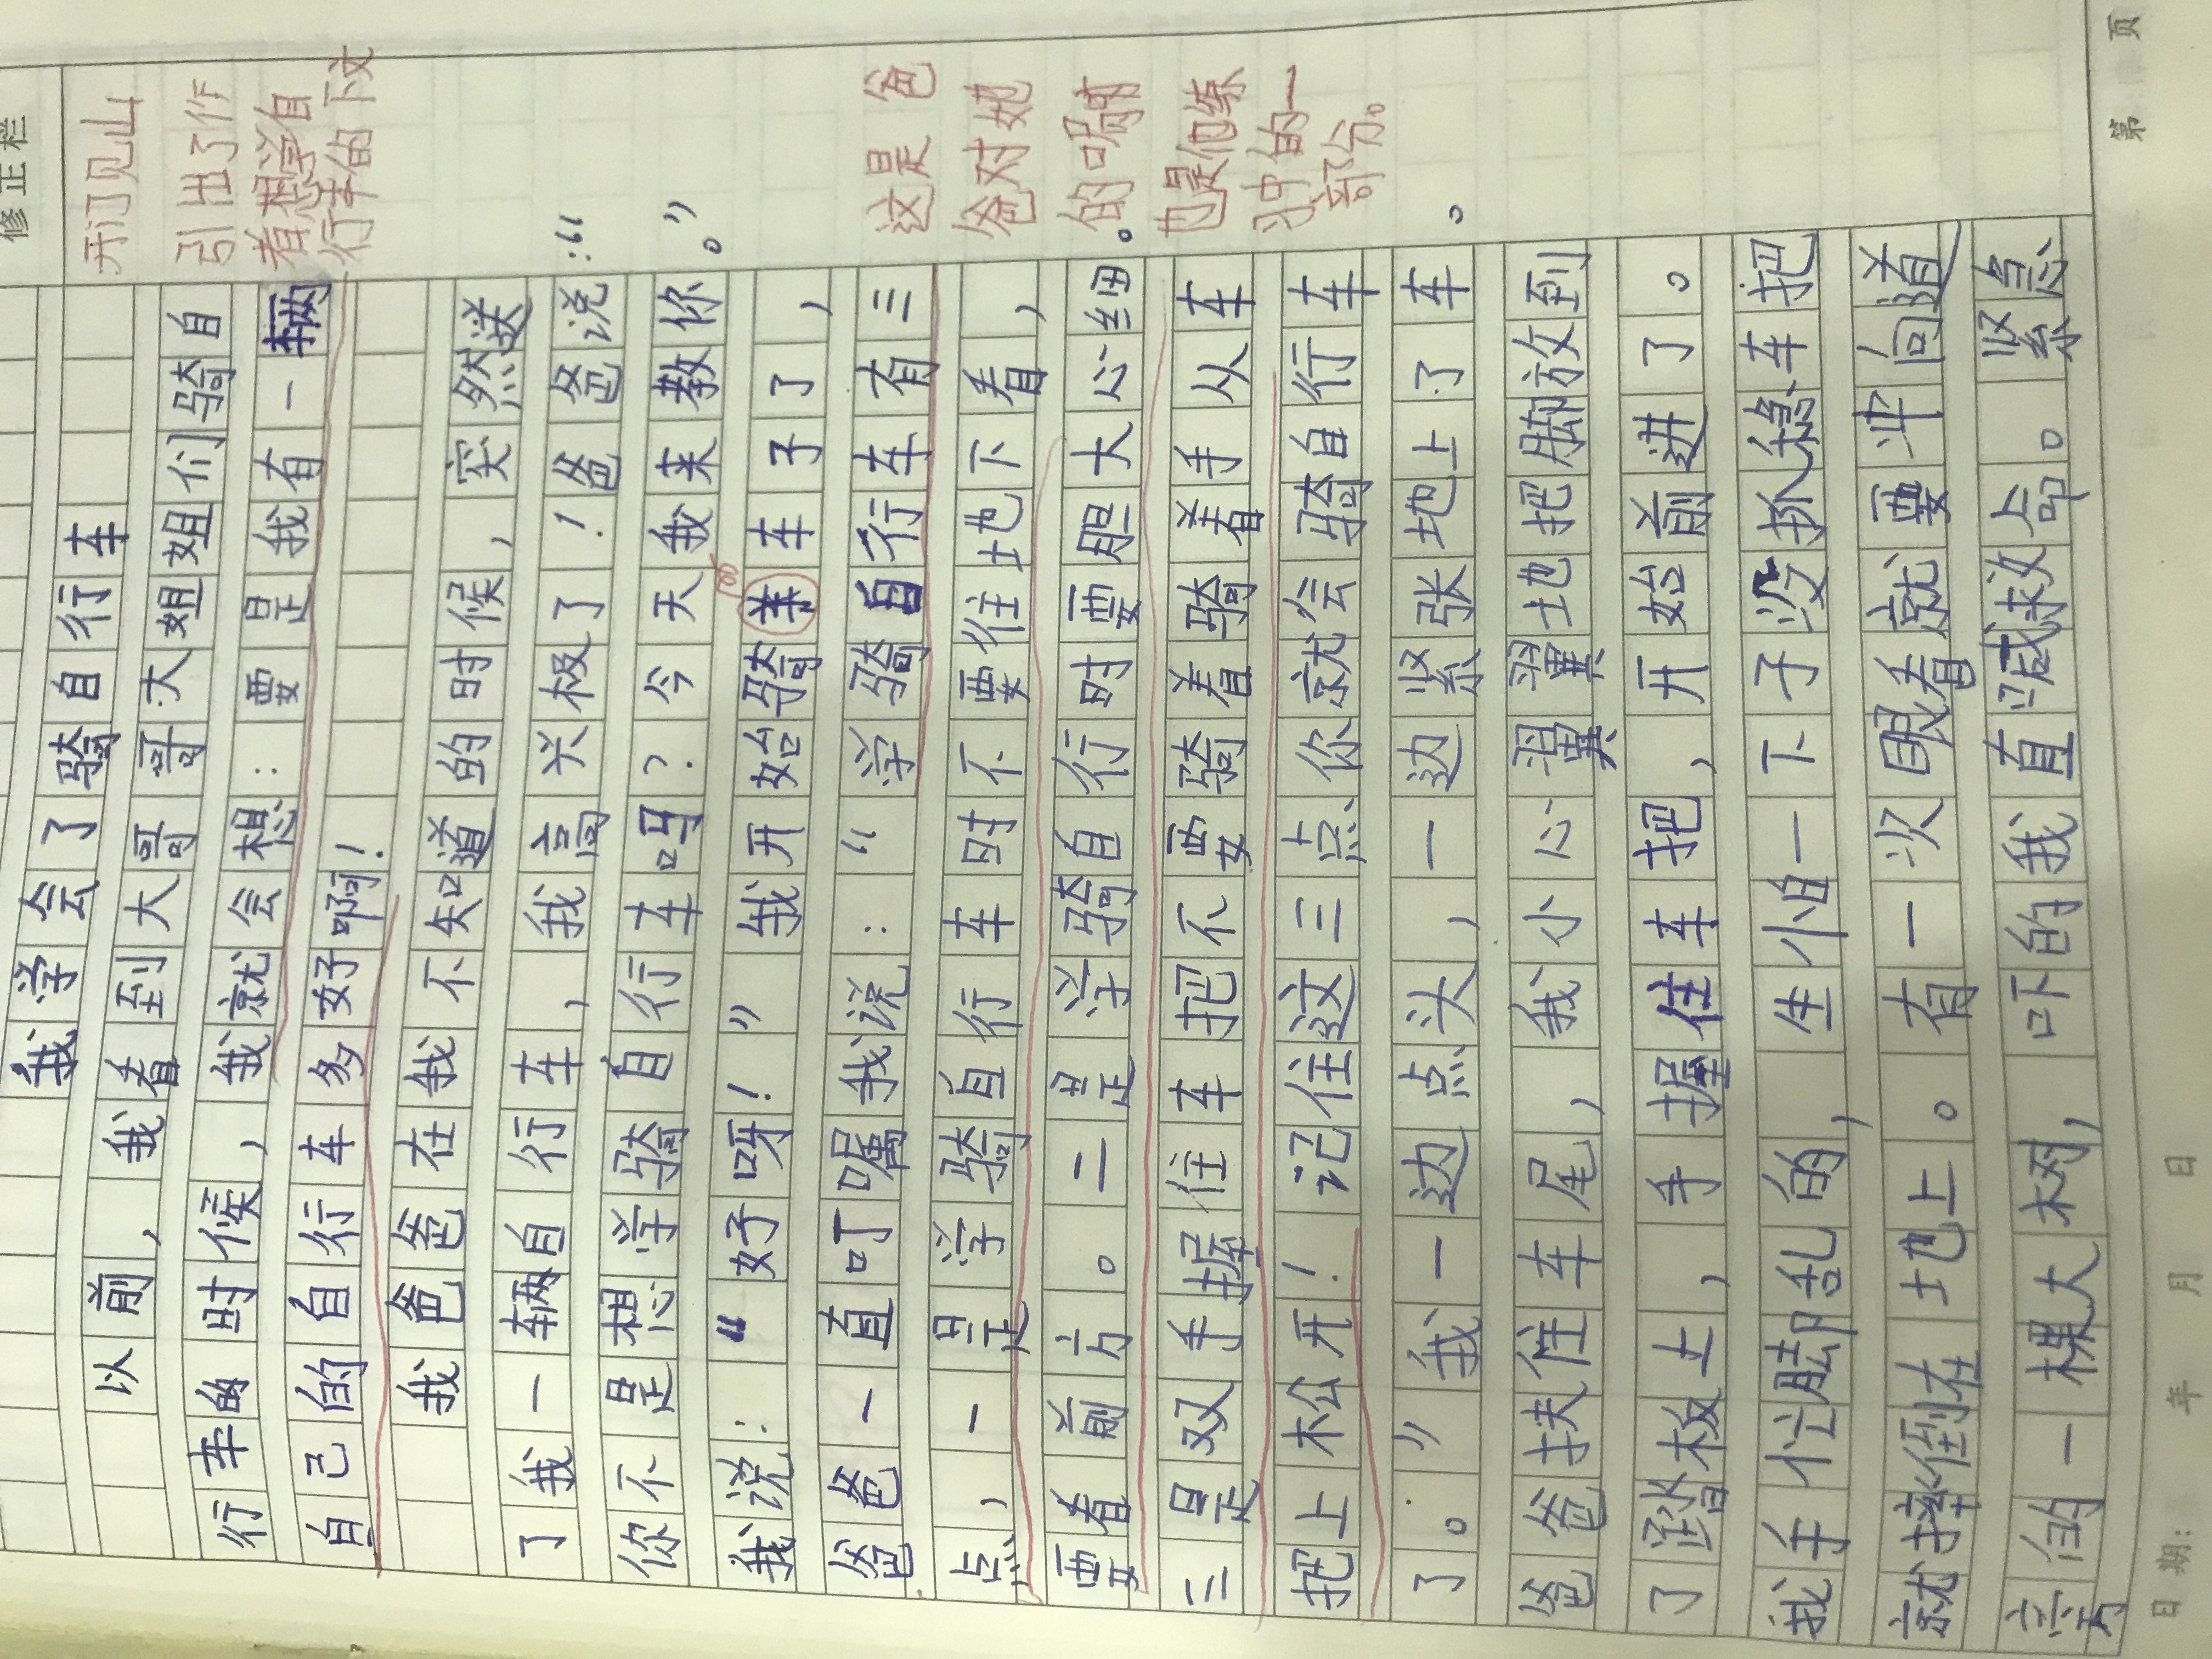 修正栏
我学会了骑自行车
以前，我看到大哥哥大姐姐们骑自
行车的时候，我就会想：要是我有一辆
自己的自行车多好啊！
我爸爸在我不知道的时候，突然送
了我一辆自行车，我高兴极了！爸爸说：“
你不是想学骑自行车吗？今天我来教你。”
我说：“好呀！”我开始骑车子了，
爸爸一直叮嘱我说：“学骑自行车有三
点，一是学骑自行车时不要往地下看，
要看前方。二是学骑自行时要胆大心细。
三是双手握住车把不要骑着骑着手从车
把上松开！记住这三点你就会骑自行车
了。”我一边点头，一边紧张地上了车。
爸爸扶住车尾，我小心翼翼地把脚放到
了踏板上，手握住车把，开始前进了。
我手忙脚乱的，生怕一下子没抓稳车把
就摔倒在地上。有一次眼看就要冲向道
旁的一棵大树，吓的我直喊救命。紧急
开门见山
引出了作
者想学自
行车的下文
这是爸
爸对她
的嘱咐
也是他练
习中的一
部分。
日期： 年 月 日
第 页